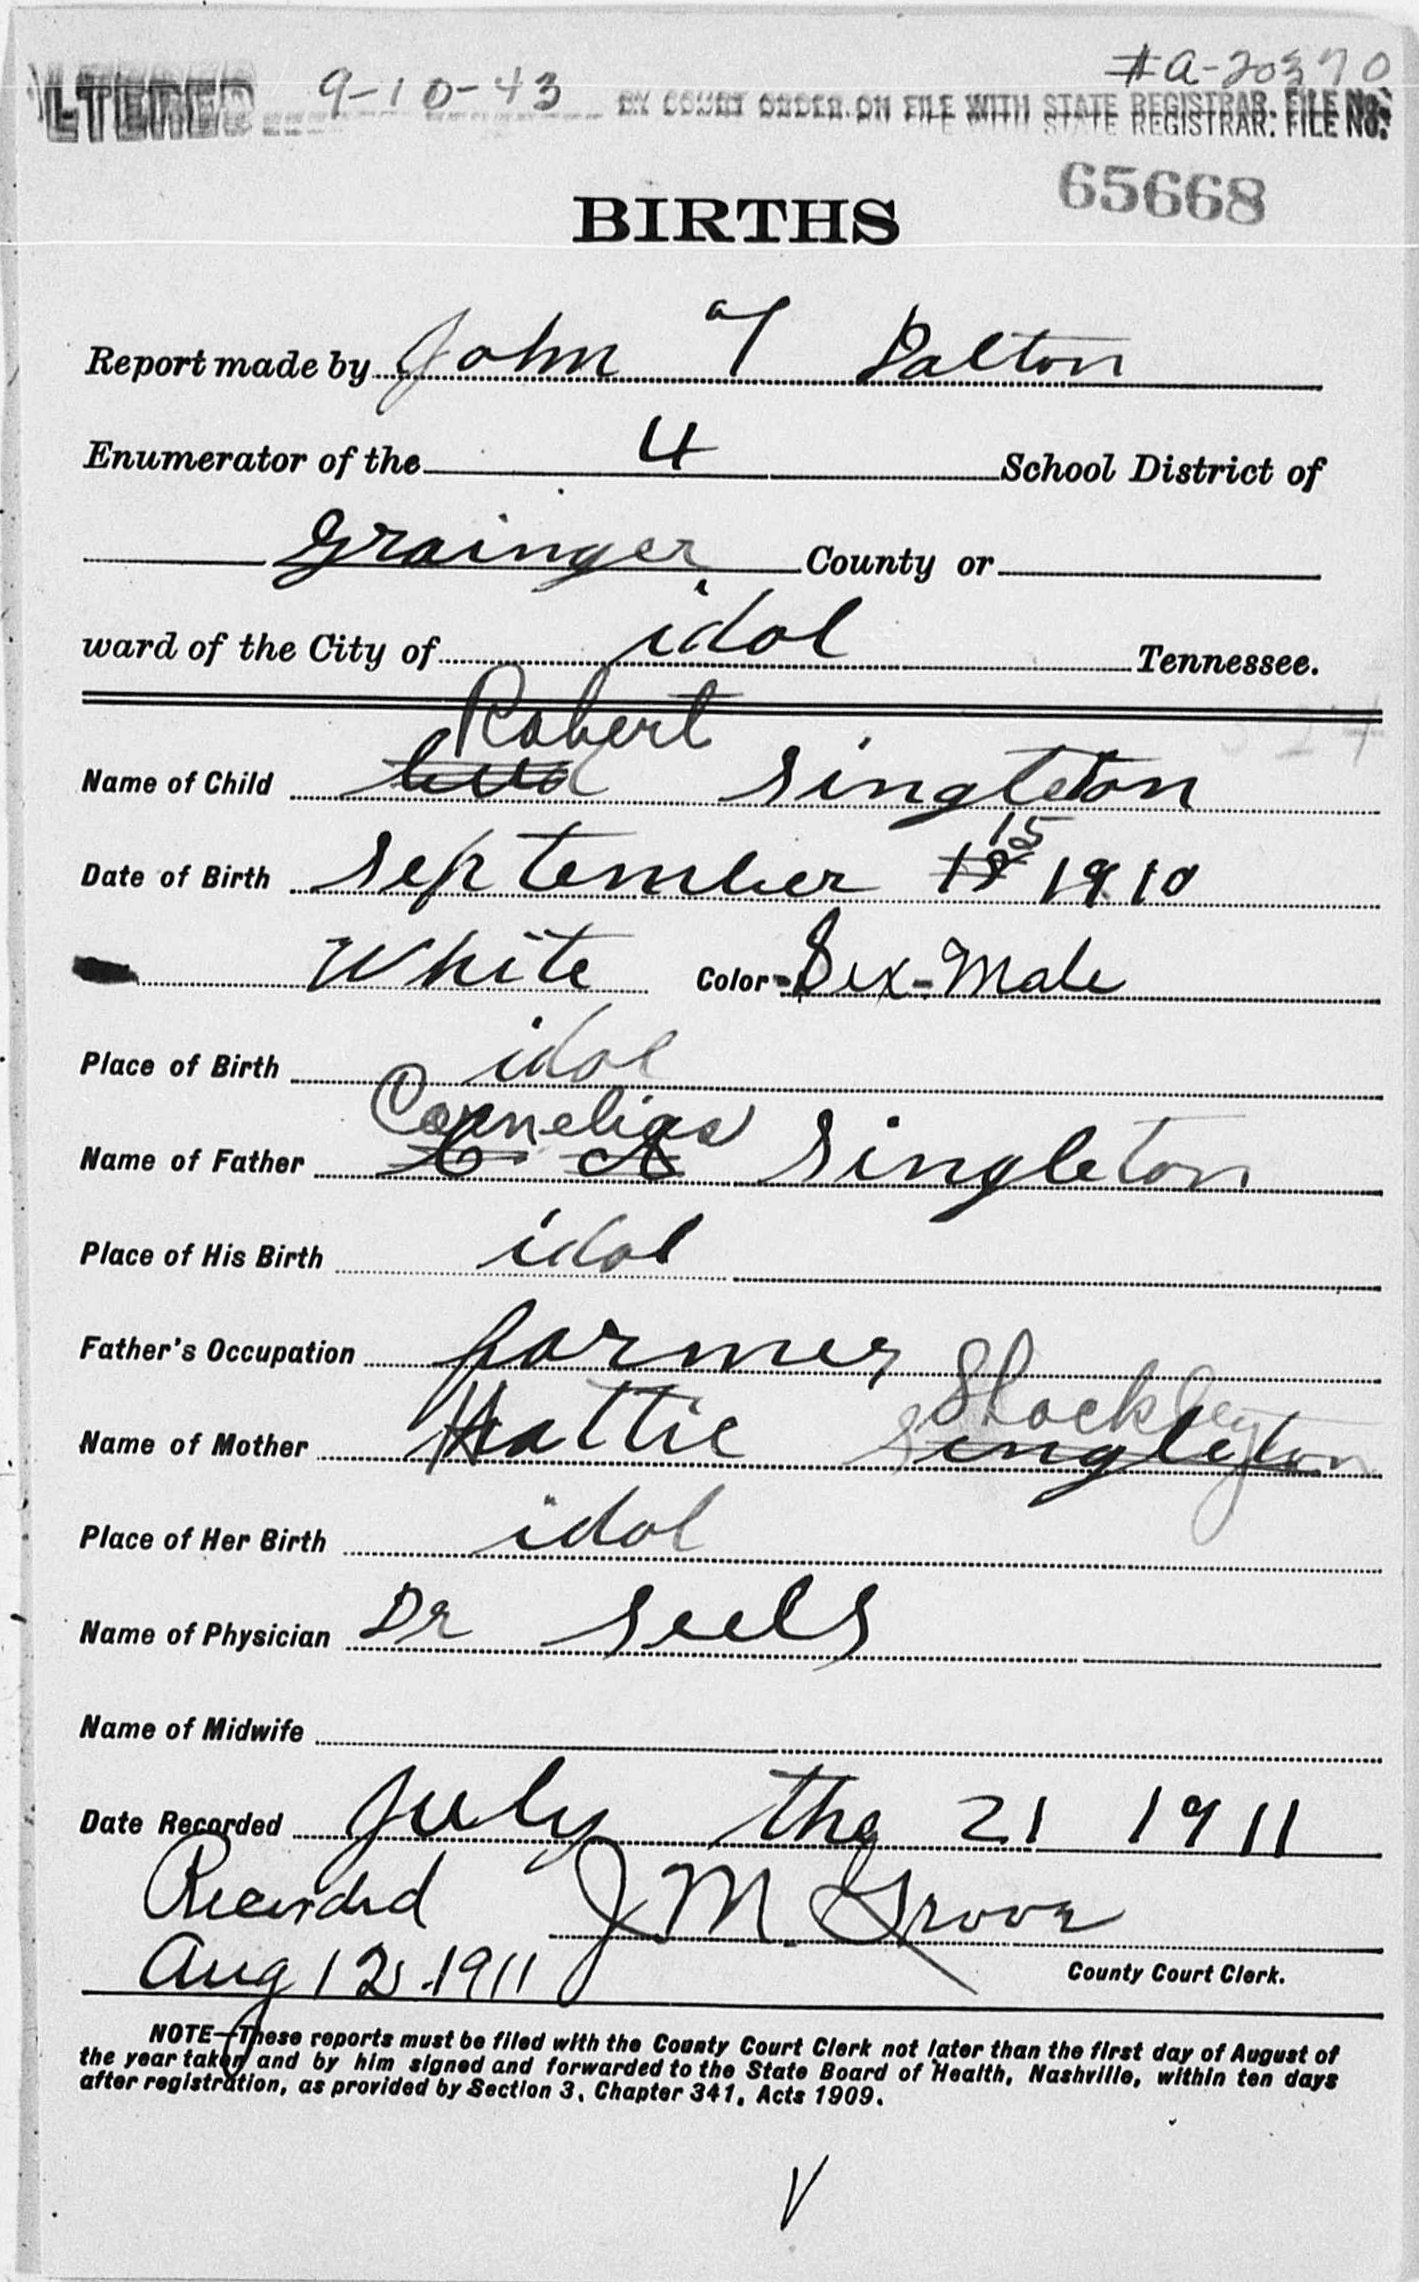 ALTERED 9-10-43 BY COURT ORDER ON FILE WITH STATE REGISTRAR. FILE No. #A-20370
65668
BIRTHS
Report made by John a T Dalton
Enumerator of the 4 School District of
Grainger County or
ward of the City of idol Tennessee.
Robert
Name of Child Singleton
15
Date of Birth September 1910
White Color Sex-Male
Place of Birth idol
Cornelias
Name of Father C A Singleton
Place of His Birth idol
Father's Occupation farmer
Shockley
Name of Mother Hattie Singleton
Place of Her Birth idol
Name of Physician Dr Seels
Name of Midwife
Date Recorded July the 21 1911
Recorded J. M. Grove
Aug 12 1911
County Court Clerk.
NOTE—These reports must be filed with the County Court Clerk not later than the first day of August of
the year taken and by him signed and forwarded to the State Board of Health, Nashville, within ten days
after registration, as provided by Section 3, Chapter 341, Acts 1909.